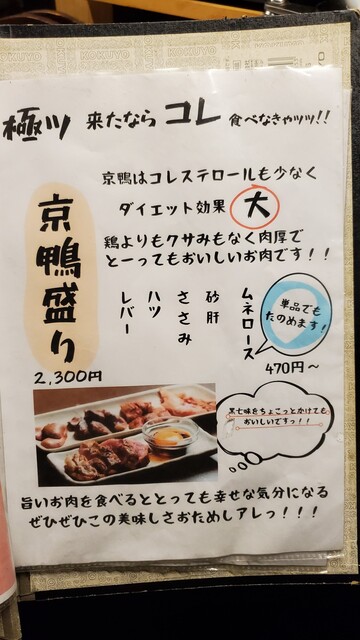 極ツ 来たなら コレ 食べなきゃッッ!!
京鴨はコレステロールも少なく
ダイエット効果 大
鶏よりもクサみもなく肉厚で
とーってもおいしいお肉です!!
京鴨盛り
2,300円
ムネロース
砂肝
ささみ
ハツ
レバー
単品でも
たのめます!
470円〜
黒七味をちょこっとかけても
おいしいですっ!!
旨いお肉を食べるととっても幸せな気分になる
ぜひぜひこの美味しさおためしアレっ!!!